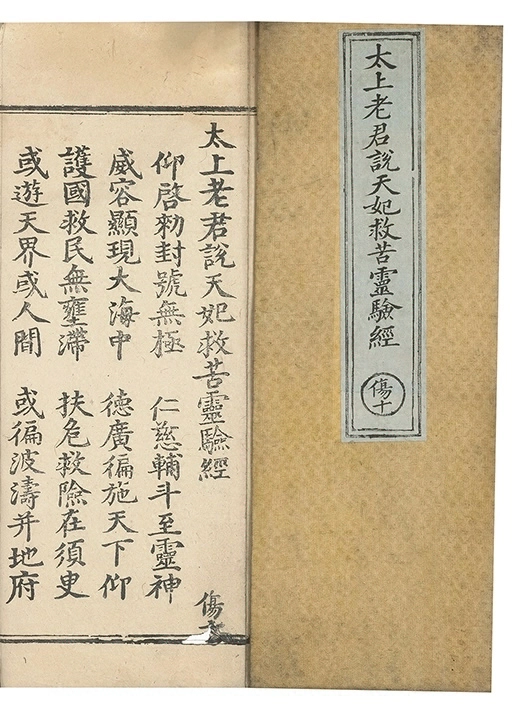 太上老君說天妃救苦靈驗經
傷十
太上老君說天妃救苦靈驗經 傷十
仰啓勑封號無極 仁慈輔斗至靈神
威容顯現大海中 德廣徧施天下仰
護國救民無壅滯 扶危救險在須臾
或遊天界或人間 或徧波濤并地府